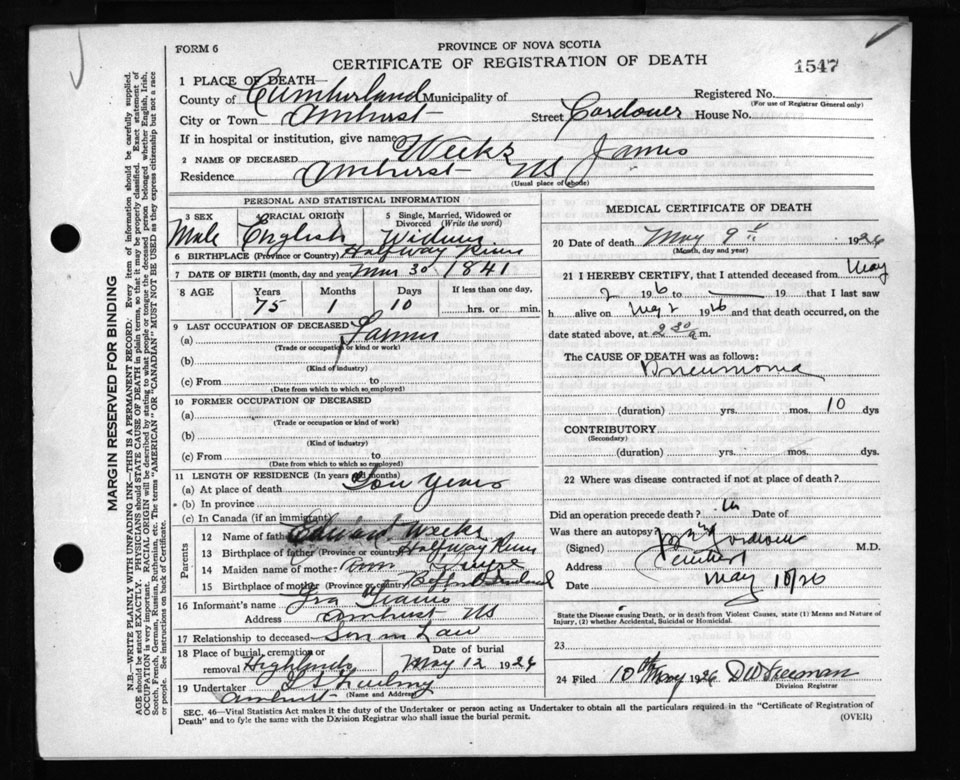 FORM 6
PROVINCE OF NOVA SCOTIA
CERTIFICATE OF REGISTRATION OF DEATH
1547
1 PLACE OF DEATH—
County of Cumberland Municipality of
Registered No.
(For use of Registrar General only)
City or Town Amherst Street Cordover House No.
If in hospital or institution, give name
2 NAME OF DECEASED Weeks James
Residence Amherst NS
(Usual place of abode)
PERSONAL AND STATISTICAL INFORMATION
3 SEX 4 RACIAL ORIGIN 5 Single, Married, Widowed or Divorced (Write the word)
Male English
6 BIRTHPLACE (Province or Country) Halfway River
7 DATE OF BIRTH (month, day and year) Mar 30 1841
8 AGE Years Months Days If less than one day,
75 1 10 hrs. or min.
9 LAST OCCUPATION OF DECEASED
(a) Farmer
(Trade or occupation or kind or work)
(b)
(Kind of industry)
(c) From to
(Date from which to which so employed)
10 FORMER OCCUPATION OF DECEASED
(a)
(Trade or occupation or kind of work)
(b)
(Kind of industry)
(c) From to
(Date from which to which so employed)
11 LENGTH OF RESIDENCE (In years and months)
(a) At place of death years
(b) In province
(c) In Canada (if an immigrant)
Parents
12 Name of father Edward Weeks
13 Birthplace of father (Province or country) Halfway River
14 Maiden name of mother Ann
15 Birthplace of mother (Province or country)
16 Informant's name Ira
Address Amherst NS
17 Relationship to deceased Son in Law
18 Place of burial, cremation or removal Highland
Date of burial
May 12 1926
19 Undertaker
Amherst (Name and Address)
MEDICAL CERTIFICATE OF DEATH
20 Date of death May 9 1926
(Month, day and year)
21 I HEREBY CERTIFY, that I attended deceased from May
2 1926 to 19 that I last saw
h alive on May 2 1926 and that death occurred, on the
date stated above, at 2 30 a m.
The CAUSE OF DEATH was as follows:
Pneumonia
(duration) yrs. mos. 10 dys
CONTRIBUTORY
(Secondary)
(duration) yrs. mos. dys.
22 Where was disease contracted if not at place of death?
Did an operation precede death? Date of
Was there an autopsy?
(Signed) M.D.
Address Amherst
Date May 10/26
State the Disease causing Death, or in death from Violent Causes, state (1) Means and Nature of
Injury, (2) whether Accidental, Suicidal or Homicidal.
23
24 Filed 10th May 1926 DW Freeman
Division Registrar
SEC. 46—Vital Statistics Act makes it the duty of the Undertaker or person acting as Undertaker to obtain all the particulars required in the "Certificate of Registration of
Death" and to fyle the same with the Division Registrar who shall issue the burial permit.
(OVER)
MARGIN RESERVED FOR BINDING
N.B.—WRITE PLAINLY WITH UNFADING INK—THIS IS A PERMANENT RECORD. Every item of information should be carefully supplied.
AGE should be stated EXACTLY. PHYSICIANS should STATE CAUSE OF DEATH in plain terms, so that it may be properly classified. Exact statement of
OCCUPATION is very important. RACIAL ORIGIN will be described by stating to what people or tongue the deceased person belonged whether English, Irish,
Scotch, French, German, Russian, Ruthenian, etc. The terms "AMERICAN" OR "CANADIAN" MUST NOT BE USED as they express citizenship but not a race
or people. See instructions on back of Certificate.